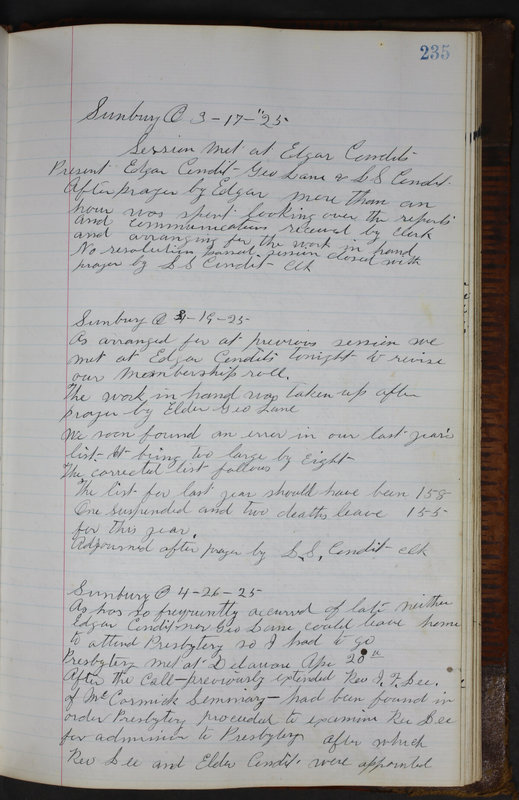 235
Sunbury O 3-17-"25
Session met at Edgar Condits
Present - Edgar Condit - Geo Lane & S S Condit.
After prayer by Edgar more than an
hour was spent looking over the reports
and communications received by clerk
and arranging for the work in hand
No resolutions passed, session closed with
prayer by S S Condit - clk
Sunbury O 3-19-25
As arranged for at previous session we
met at Edgar Condits tonight to revise
our membership roll.
The work in hand was taken up after
prayer by Elder Geo Lane
We soon found an error in our last year's
list - it being too large by Eight -
The corrected list follows
The list for last year should have been 158
One suspended and two deaths leave 155
for this year.
Adjourned after prayer by S. S. Condit clk
Sunbury O 4-26-25
As has so frequently accured of late neither
Edgar Condit nor Geo Lane could leave home
to attend Presbytery so I had to go
Presbytery met at Delaware Apr 20th
After the call - previously extended Rev Dee.
of McCormick Seminary - had been found in
order Presbytery proceeded to examine Rev Dee
for admission to Presbytery after which
Rev Dee and Elder Condit were appointed